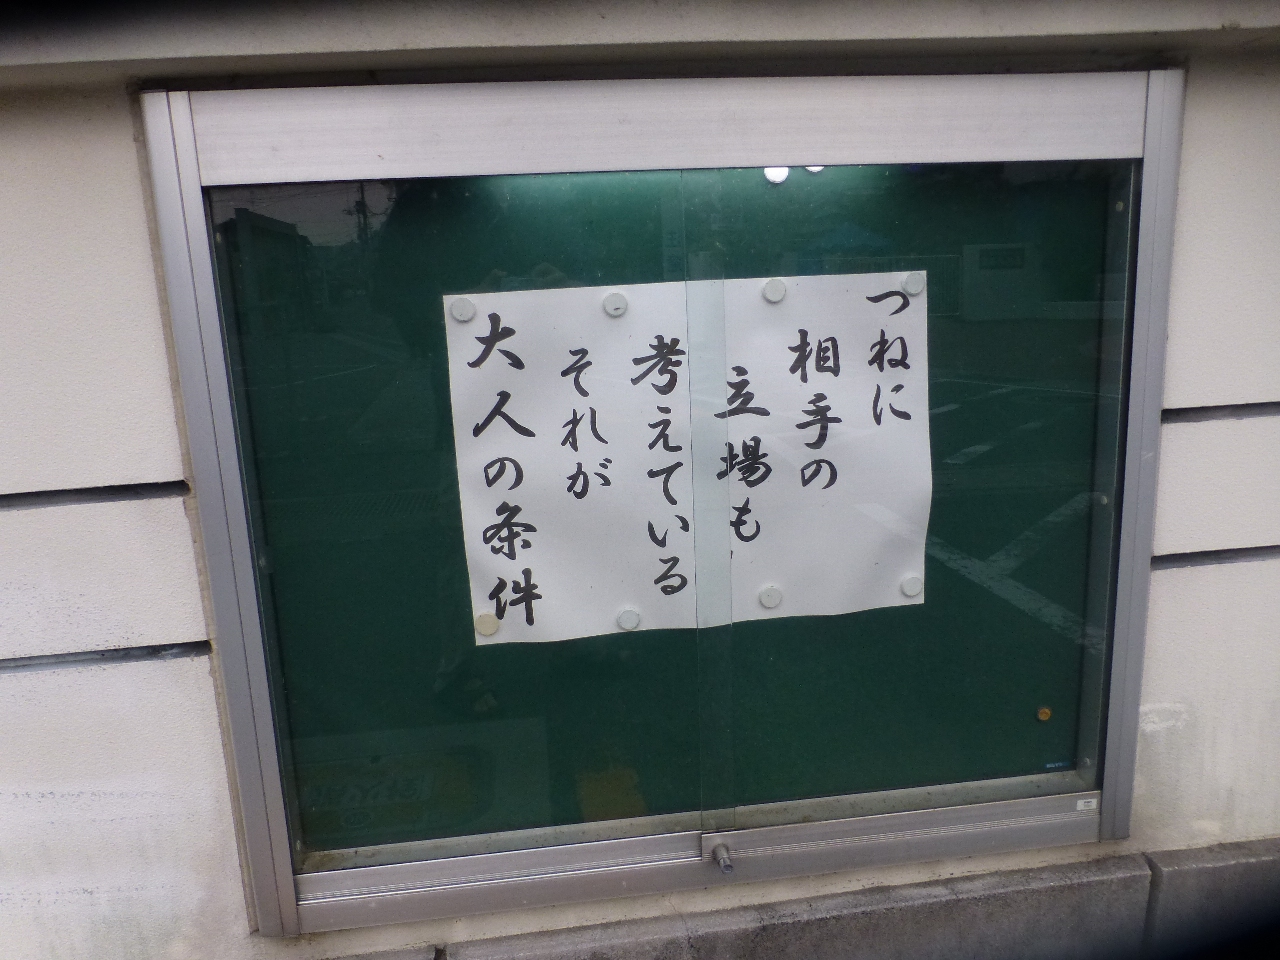 つねに
相手の
立場も
考えている
それが
大人の条件